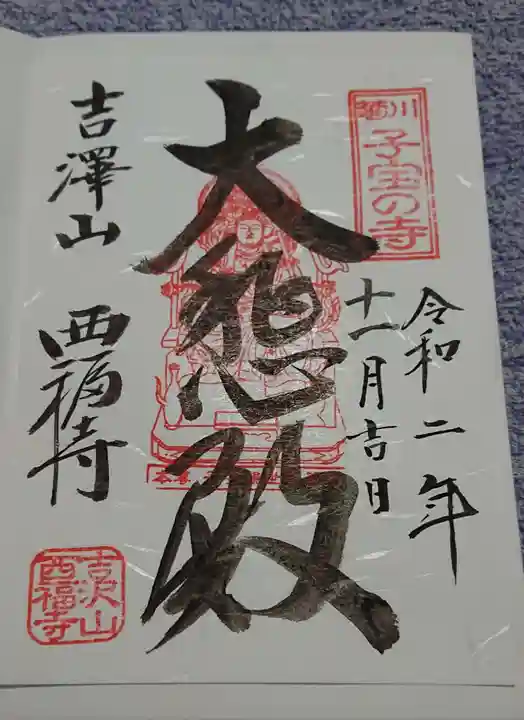 子宝の寺
令和二年
十一月吉日
大悲殿
吉澤山
西福寺
吉沢山
西福寺